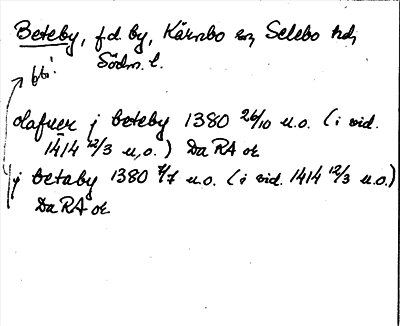 Beteby, f.d. by, Kärnbo sn, Selebo hd,
Södm. l.
bti!
olafuer j beteby 1380 26/10 u.o. (i vid.
1414 12/3 u.o.) DaRA or
j betaby 1380 7/7 u.o. (i vid. 1414 12/3 u.o.)
DaRA or